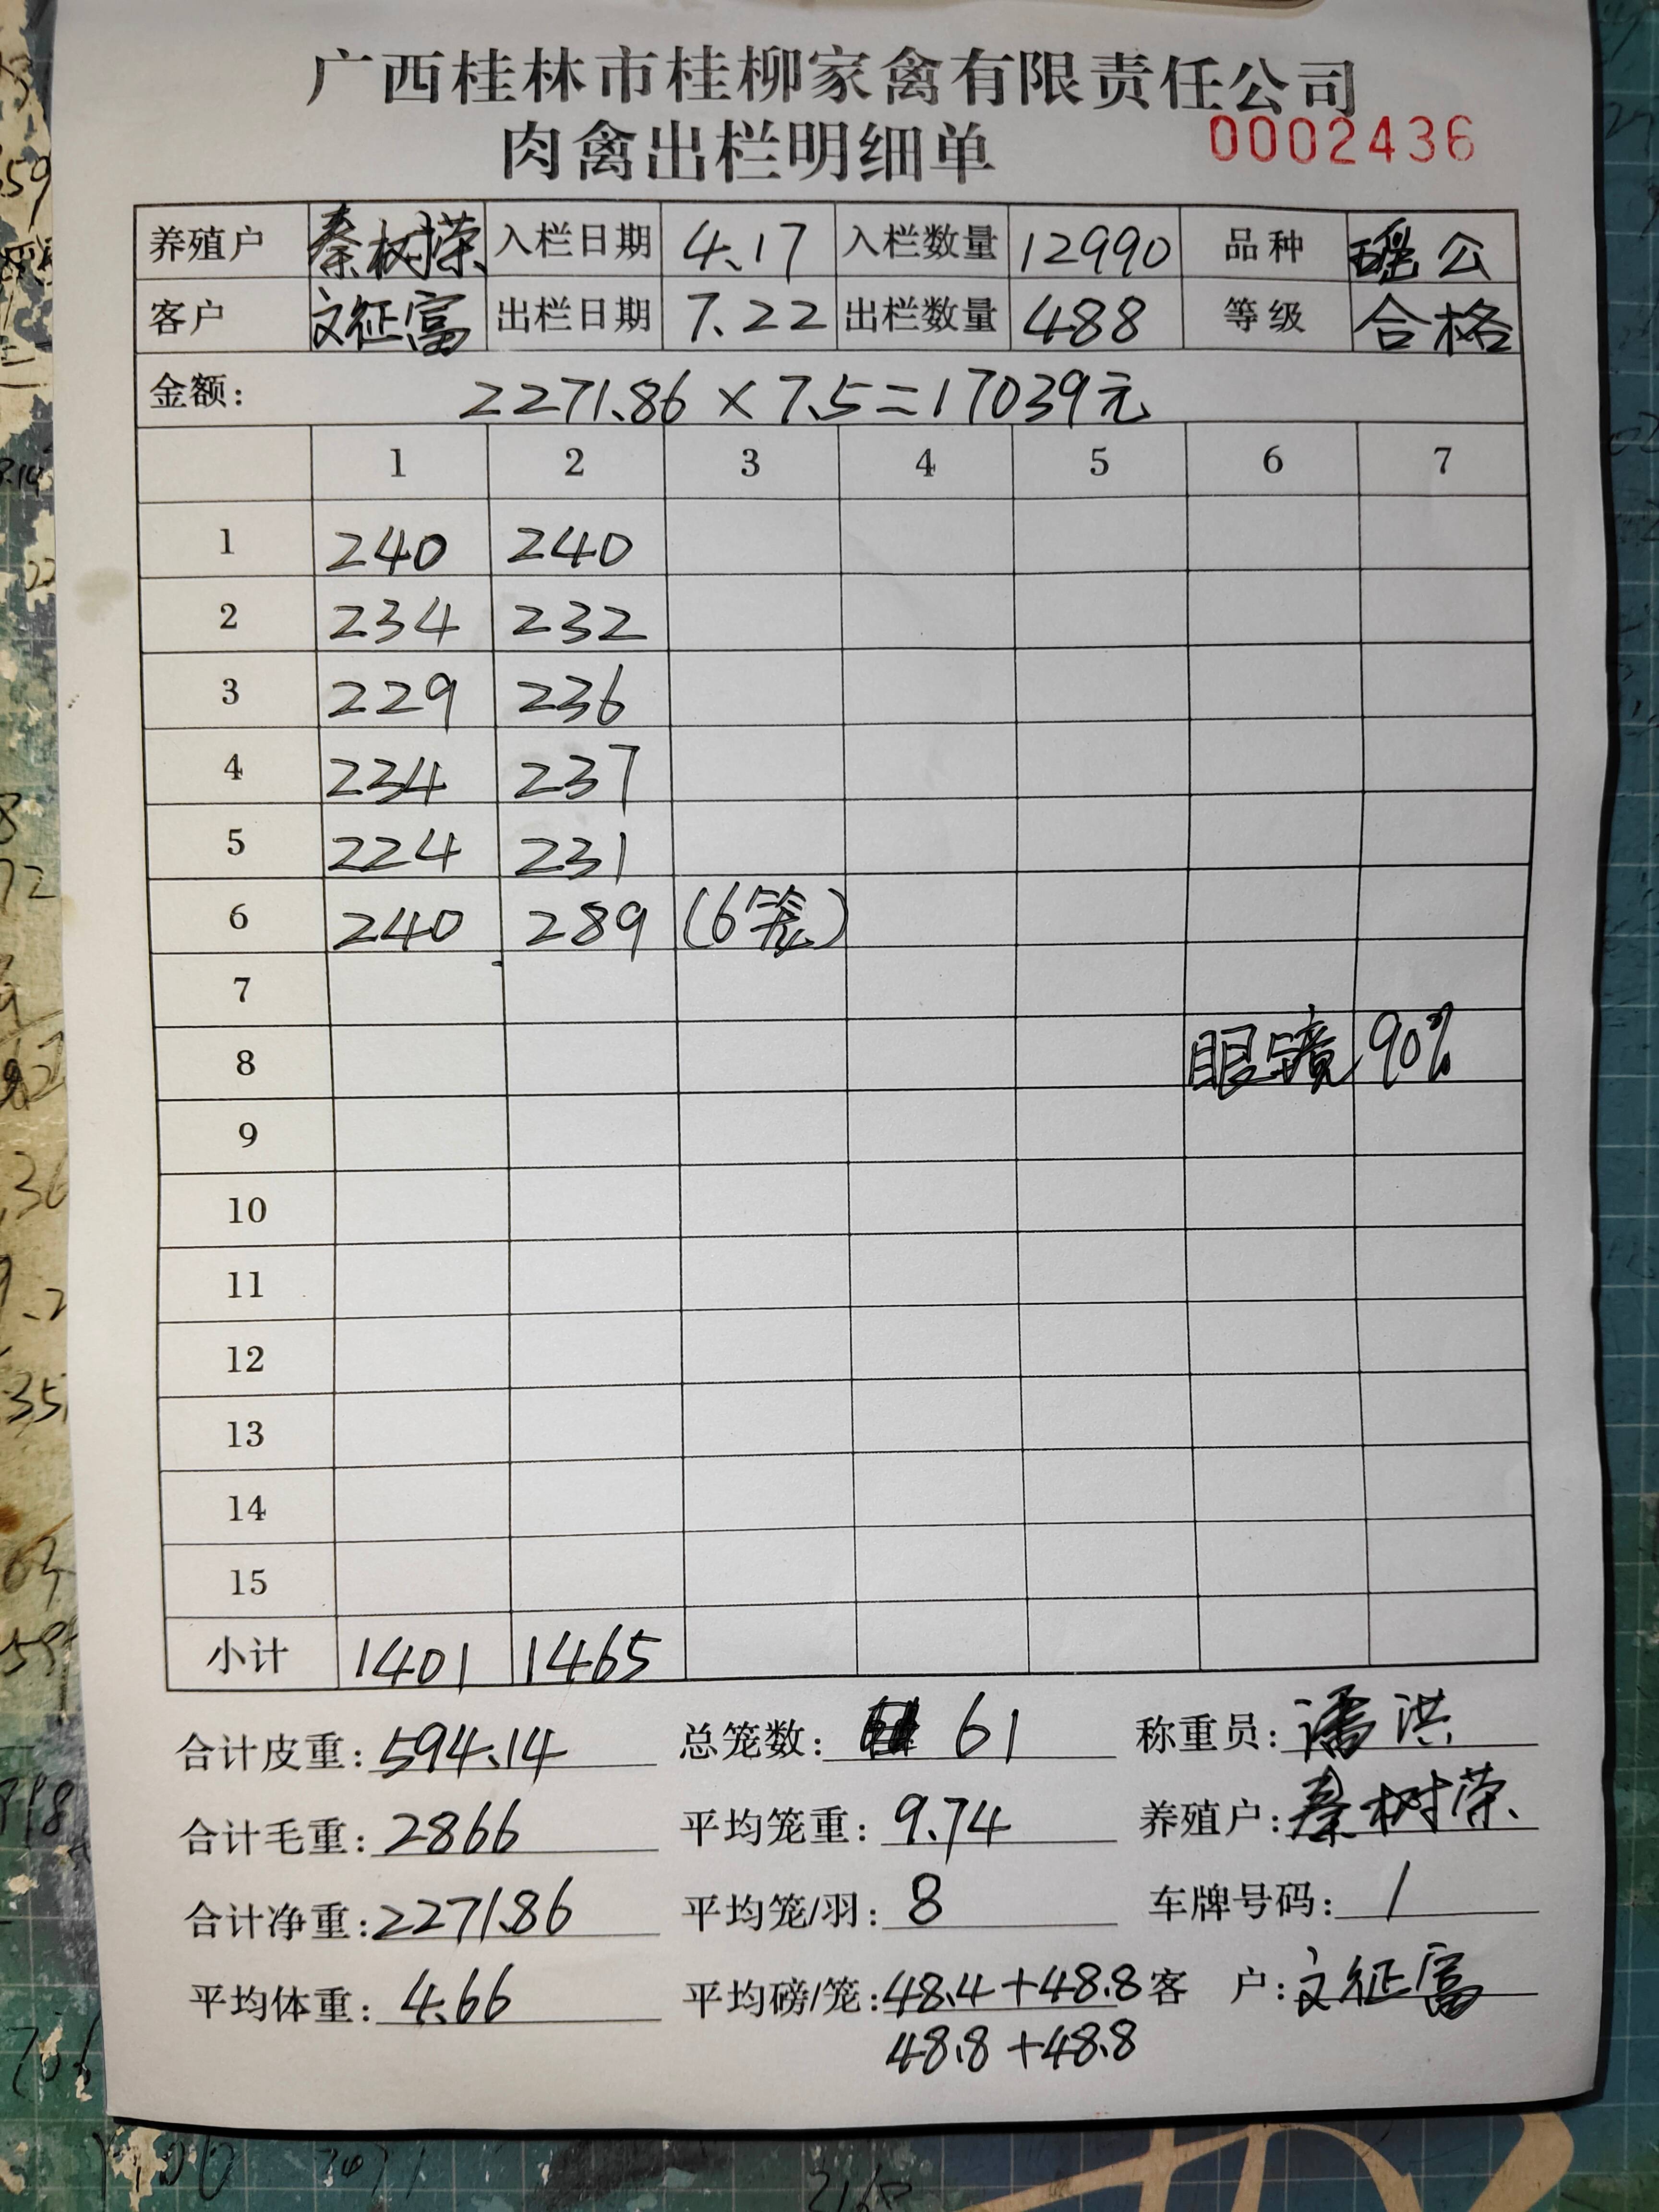 广西桂林市桂柳家禽有限责任公司
肉禽出栏明细单 0002436
养殖户 秦树荣 入栏日期 4.17 入栏数量 12990 品种 瑶公
客户 文征富 出栏日期 7.22 出栏数量 488 等级 合格
金额: 2271.86 × 7.5 = 17039元
1 2 3 4 5 6 7
1 240 240
2 234 232
3 229 236
4 234 237
5 224 231
6 240 289 (6笼)
7
8 眼镜 90%
9
10
11
12
13
14
15
小计 1401 1465
合计皮重: 594.14 总笼数: 61 称重员: 潘洪
合计毛重: 2866 平均笼重: 9.74 养殖户: 秦树荣
合计净重: 2271.86 平均笼/羽: 8 车牌号码: 1
平均体重: 4.66 平均磅/笼: 48.4+48.8 客 户: 文征富
48.8+48.8